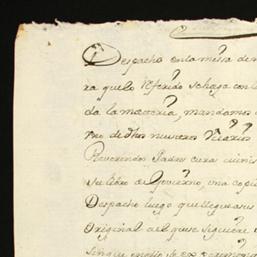 Despacho en la missa de
ra que lo referido se haga con la
da la materia, mandamos
pro de dhos nuestros Vicarios
Reverendos Padres cura minis
su libro de Govierno, una copia
Despacho luego que llegue a sus
Original al que se siguiere